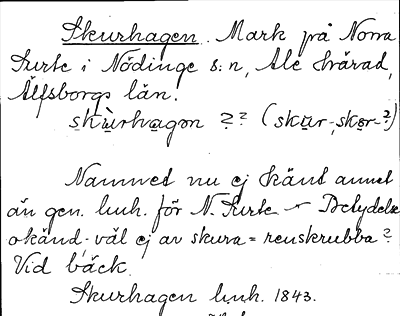 Skurhagen. Mark på Norra
Surte i Nödinge s:n, Ale härad,
Älfsborgs län.
skùrhagon ?? (skur-, skor-?)
Namnet nu ej känt annat
än gen. lmh. för N. Surte – Betydelse
okänd; väl ej av skura = renskrubba?
Vid bäck.
Skurhagen lmh. 1843.